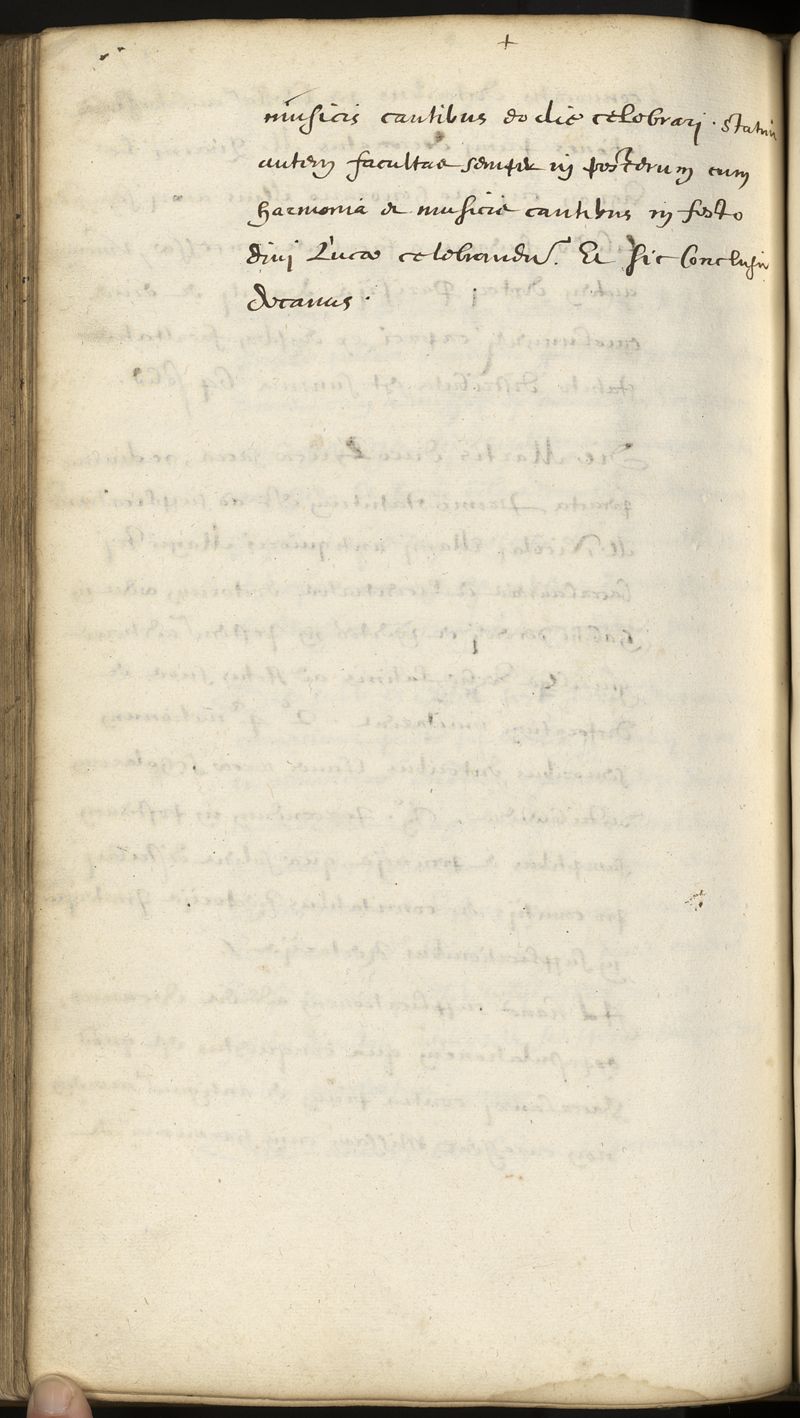 +
musicis cantibus eo die celebrarj . statuit
autem facultas semper in posterum cum
harmonia et musicis cantibus in festo
divj Lucæ celebrandu. Et sic Conclusit
decanus .